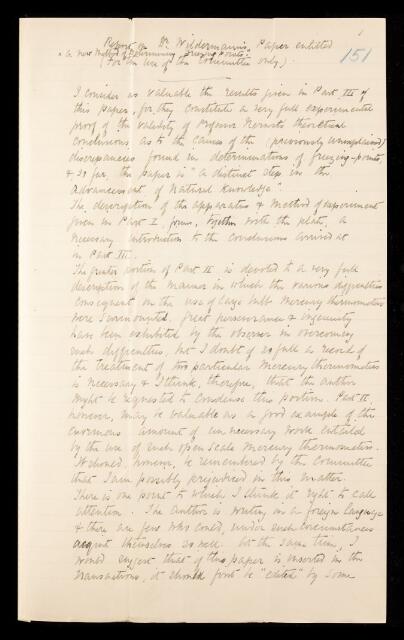 1
151
Report on Dr Wildermann's Paper entitled
"A new Method of Determining Freezing Points"
(For the use of the Committee only)
I consider as valuable the results given in Part III of
this paper, for they constitute a very full experimental
proof of the validity of Professor Nernst's theoretical
conclusions as to the causes of the (previously unexplained)
discrepancies found in determinations of freezing-points,
& so far, the paper is "a distinct step in the
advancement of Natural Knowledge".
The description of the apparatus & method of experiment
given in Part I forms, together with the plate, a
necessary introduction to the conclusions arrived at
in Part III.
The greater portion of Part II is devoted to a very full
description of the manner in which the various difficulties
consequent on the use of large bulb Mercury thermometers
were surmounted. Great perseverance & ingenuity
have been exhibited by the observer in overcoming
such difficulties, but I doubt if so full a record of
the treatment of two particular Mercury thermometers
is necessary & I think, therefore, that the author
might be requested to condense this portion. Part II,
however, may be valuable as a good example of the
enormous amount of unnecessary work entailed
by the use of such open scale Mercury thermometers.
It should, however, be remembered by the Committee
that I am possibly prejudiced in this matter.
There is one point to which I think it right to call
attention. The author is writing in a foreign language
& there are few who could, under such circumstances
acquit themselves so well. At the same time, I
would suggest that if this paper is inserted in the
Transactions, it should first be "edited" by some